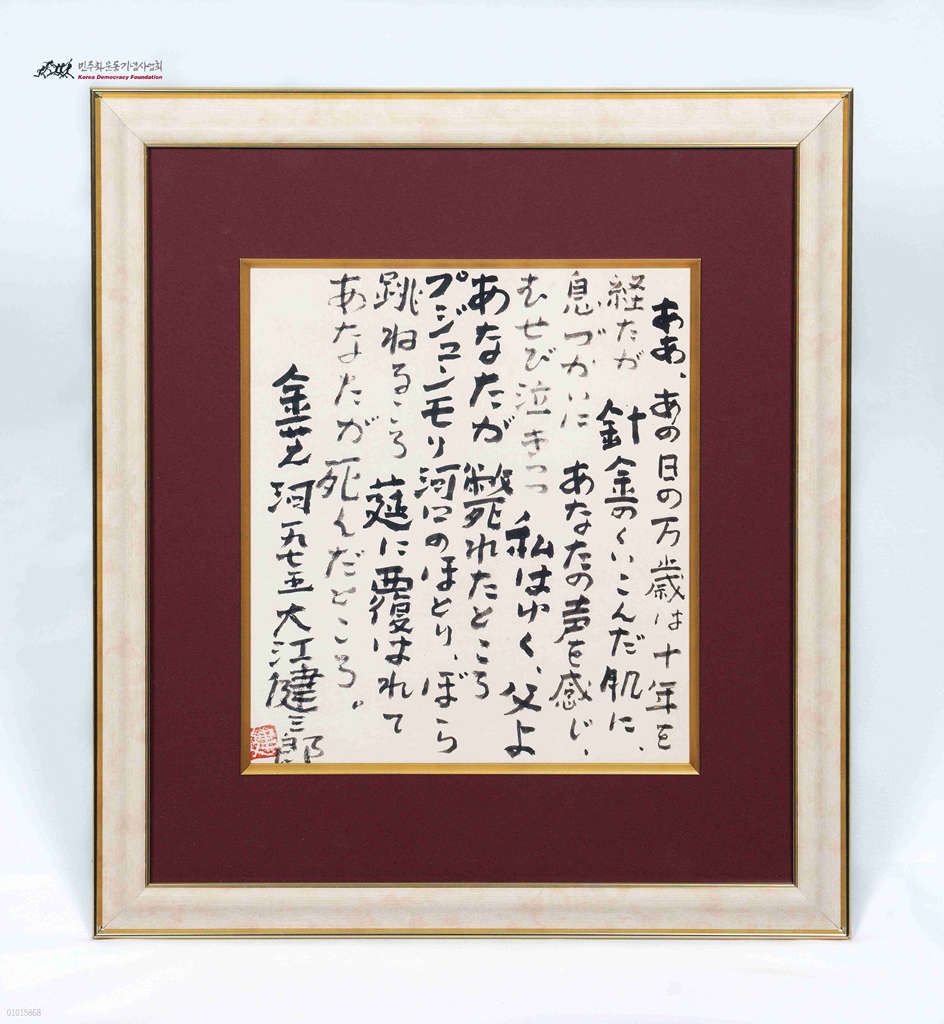 민주화운동기념사업회
Korea Democracy Foundation
ああ、あの日の万歳は十年を
経たが 針金のくいこんだ肌に、
息づかいに あなたの声を感じ、
むせび泣きつつ 私はゆく、父よ
あなたが斃れたところ
プジュンモリ河口のほとり、ぼら
跳ねるころ 莚に覆はれて
あなたが死んだところ。
金芝河 一九七五 大江健三郎
01015868